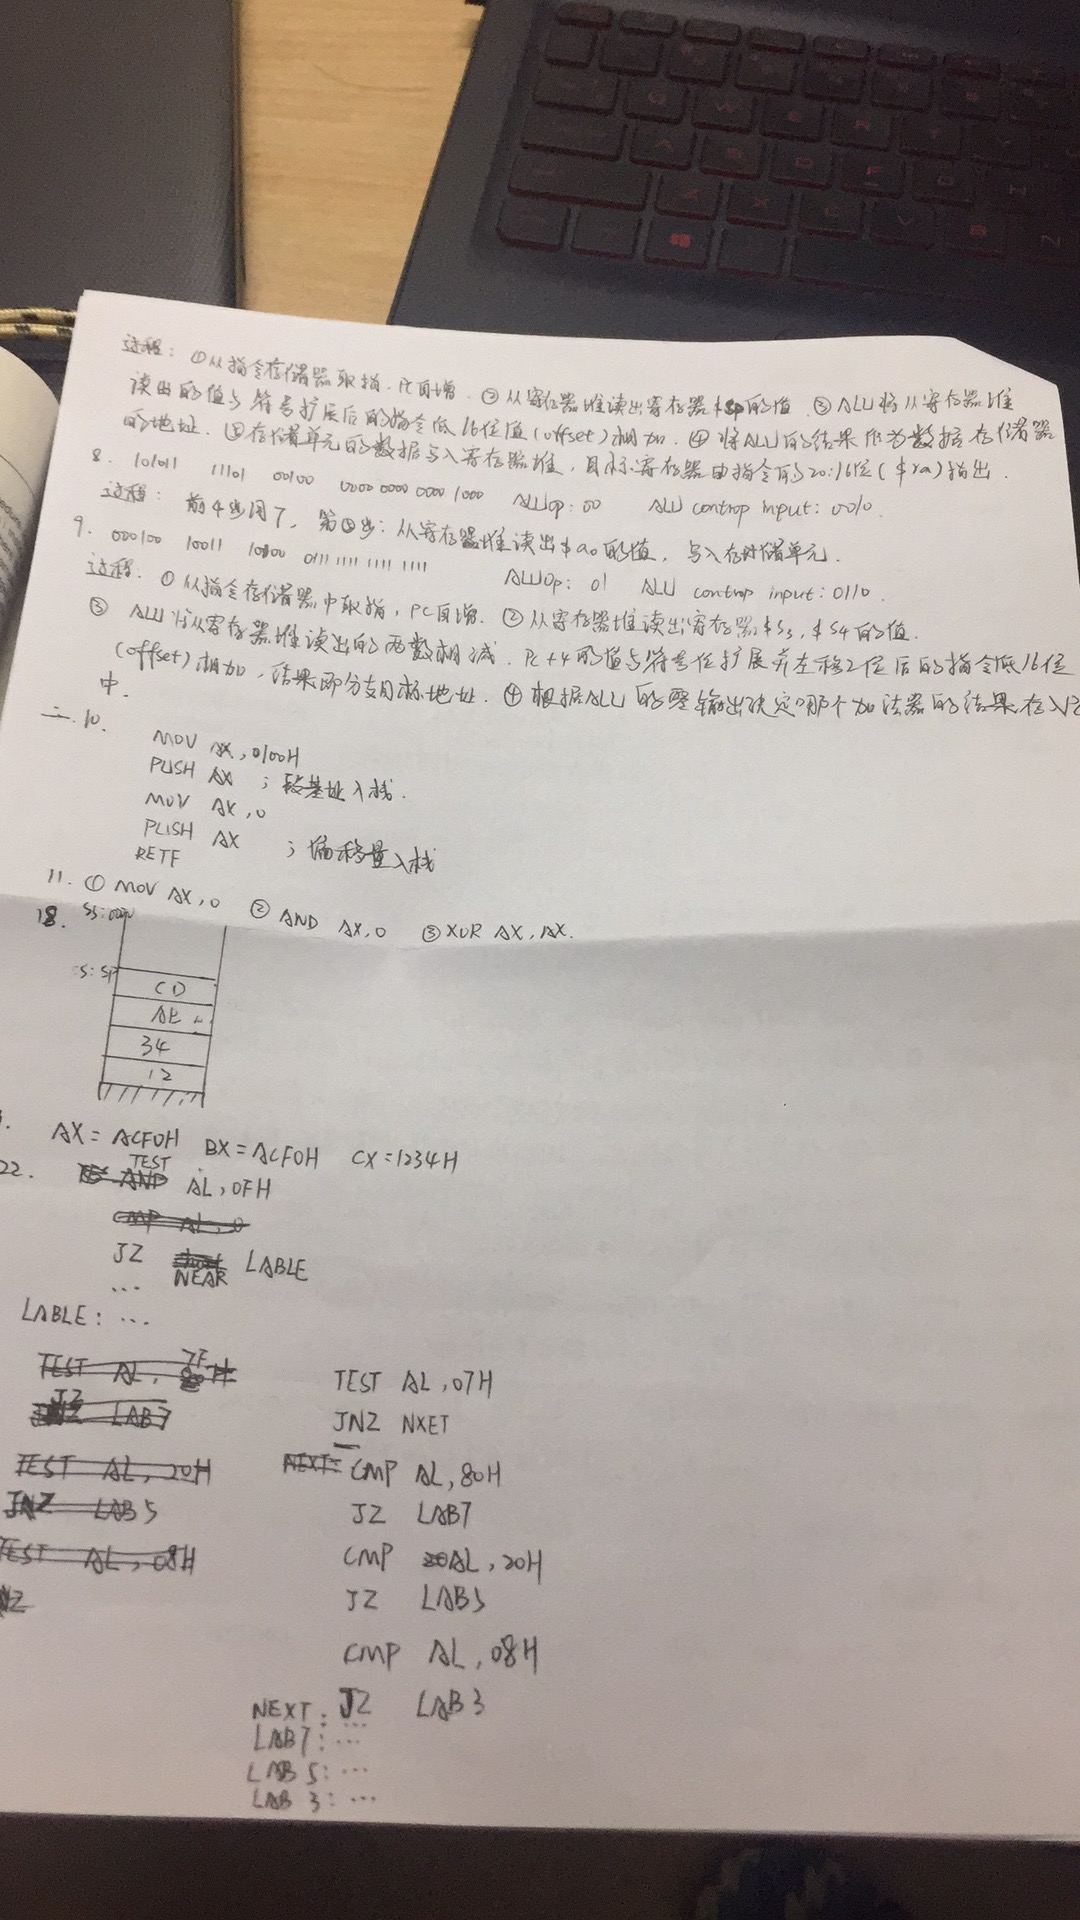 过程: ①从指令存储器取指. PC自增. ②从寄存器堆读出寄存器$sp的值. ③ALU将从寄存器堆
读出的值与符号扩展后的指令低16位值(offset)相加. ④将ALU的结果作为数据存储器
的地址. ⑤存储单元的数据写入寄存器堆, 目标寄存器由指令的20:16位($ra)指出.
8. 101011 11101 00100 0000 0000 0000 1000 ALUop: 00 ALU controp input: 0010.
过程: 前4步同7, 第⑤步: 从寄存器堆读出$a0的值, 写入存储单元.
9. 000100 10011 10100 0111 1111 1111 1111 ALUOp: 01 ALU controp input: 0110.
过程. ①从指令存储器中取指, PC自增. ②从寄存器堆读出寄存器$S3, $S4的值.
③ ALU将从寄存器堆读出的两数相减. PC+4的值与符号位扩展并左移2位后的指令低16位
(offset)相加, 结果即分支目标地址. ④根据ALU的零输出决定哪个加法器的结果存入PC
中.
二. 10.
MOV AX, 0100H
PUSH AX ; 段基址入栈.
MOV AX, 0
PUSH AX ; 偏移量入栈
RETF
11. ① MOV AX, 0 ② AND AX, 0 ③ XOR AX, AX.
18.
CD
AB
34
12
AX = ACF0H BX = ACF0H CX = 1234H
22. TEST AL, 0FH
CMP AL, 0
JZ NEAR LABLE
...
LABLE: ...
TEST AL, 07H
JNZ NXET
CMP AL, 80H
JZ LAB7
CMP AL, 20H
JZ LAB5
CMP AL, 08H
NEXT: JZ LAB3
LAB7: ...
LAB5: ...
LAB3: ...
TEST AL,
LAB7
TEST AL, 20H
JNZ LAB5
TEST AL, 08H
NZ